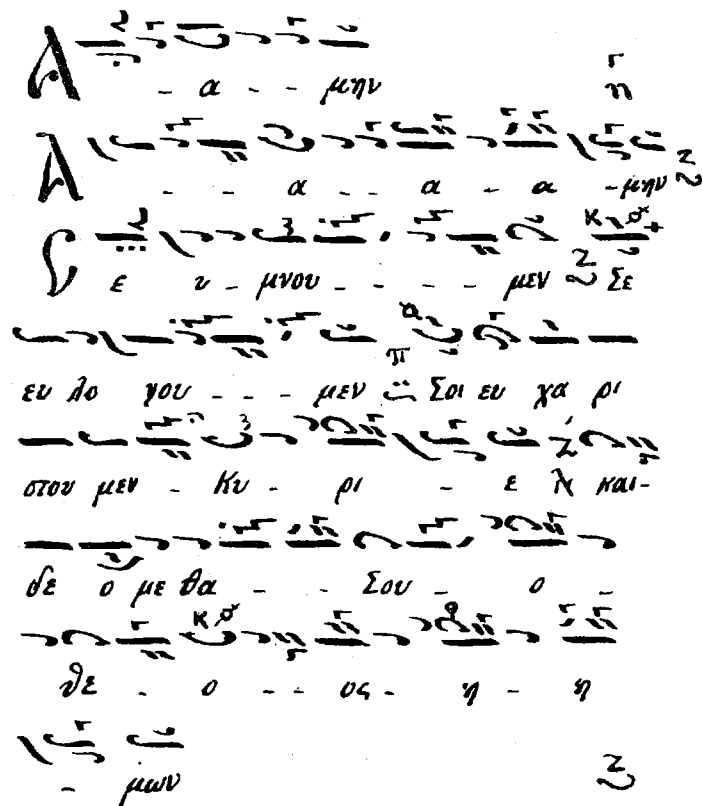 Α - α - - μην
Α - - α - - α - α - μην
Σ ε υ - μνου - - - - μεν Σε
ευ λο γου - - - μεν Σοι ευ χα ρι
στου μεν - Κυ - ρι - ε και -
δε ο με θα - - Σου - ο -
θε - ο - - ος - η - η
- μων